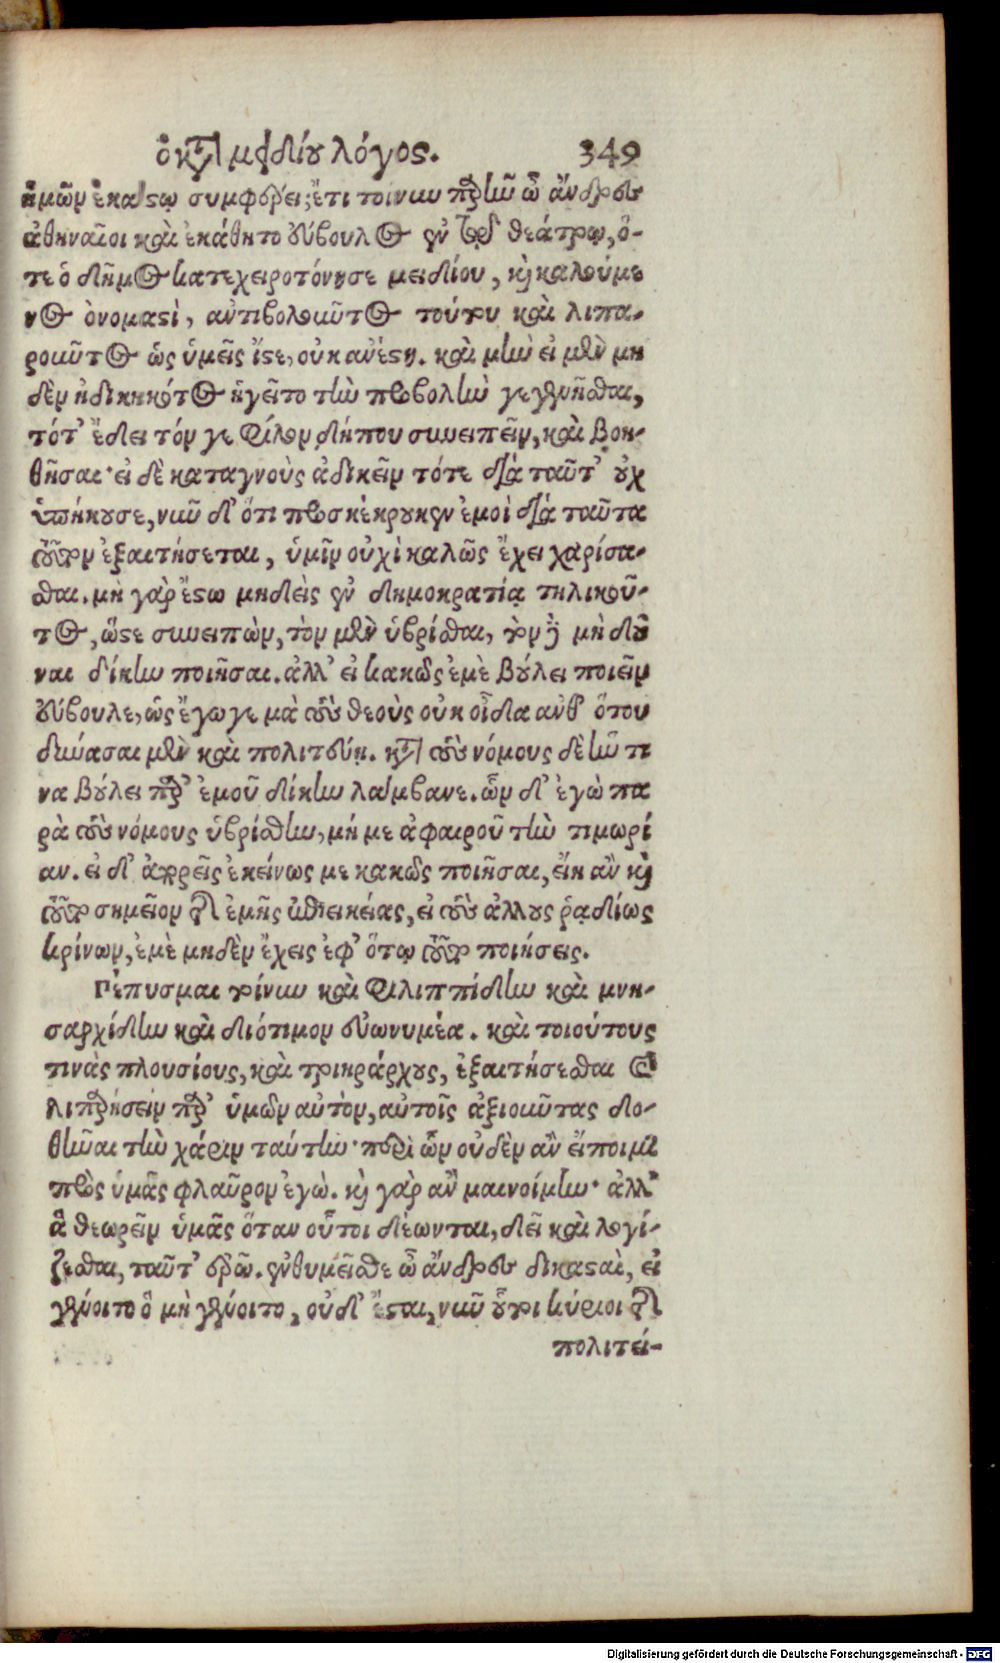 ὁ κατὰ μειδίου λόγος. 349
ἡμῶν ἑκάστῳ συμφέρει; ἔτι τοίνυν παρῆν ὦ ἄνδρες
ἀθηναῖοι καὶ ἐκάθητο εὔβουλος ἐν τῷ θεάτρῳ, ὅ-
τε ὁ δῆμος κατεχειροτόνησε μειδίου, καὶ καλούμε
νος ὀνομαστὶ, ἀντιβολοῦντος τούτου καὶ λιπα-
ροῦντος ὡς ὑμεῖς ἴστε, οὐκ ἀνέστη. καὶ μὴν εἰ μὲν μη
δὲν ἠδικηκότος ἡγεῖτο τὴν προβολὴν γεγενῆσθαι,
τότ' ἔδει τόν γε φίλον δήπου συνειπεῖν, καὶ βοη-
θῆσαι· εἰ δὲ καταγνοὺς ἀδικεῖν τότε διὰ ταῦτ' οὐχ
ὑπήκουσε, νῦν δ' ὅτι προσκέκρουκεν ἐμοὶ διὰ ταῦτα
τοῦτον ἐξαιτήσεται, ὑμῖν οὐχὶ καλῶς ἔχει χαρίσα-
σθαι. μὴ γὰρ ἔστω μηδεὶς ἐν δημοκρατίᾳ τηλικοῦ-
τος, ὥστε συνειπὼν, τὸν μὲν ὑβρίσθαι, τὸν δὲ μὴ δοῦ
ναι δίκην ποιῆσαι. ἀλλ' εἰ κακῶς ἐμὲ βούλει ποιεῖν
εὔβουλε, ὡς ἔγωγε μὰ τοὺς θεοὺς οὐκ οἶδα ἀνθ' ὅτου
δύνασαι μὲν καὶ πολιτεύῃ. κατὰ τοὺς νόμους δὲ ἥν τι
να βούλει παρ' ἐμοῦ δίκην λάμβανε. ὧν δ' ἐγὼ πα
ρὰ τοὺς νόμους ὑβρίσθην, μή με ἀφαιροῦ τὴν τιμωρί
αν. εἰ δ' ἀπορεῖς ἐκείνως με κακῶς ποιῆσαι, εἴη ἂν καὶ
τοῦτο σημεῖον τῆς ἐμῆς ἐπιεικείας, εἰ τοὺς ἄλλους ῥᾳδίως
κρίνων, ἐμὲ μηδὲν ἔχεις ἐφ' ὅτῳ τοῦτο ποιήσεις.
Πέπυσμαι τοίνυν καὶ φιλιππίδην καὶ μνη-
σαρχίδην καὶ διότιμον εὐωνυμέα. καὶ τοιούτους
τινὰς πλουσίους, καὶ τριηράρχους, ἐξαιτήσεσθαι καὶ
λιπαρήσειν παρ' ὑμῶν αὐτὸν, αὐτοῖς ἀξιοῦντας δο-
θῆναι τὴν χάριν ταύτην· περὶ ὧν οὐδὲν ἂν εἴποιμι
πρὸς ὑμᾶς φλαῦρον ἐγώ. καὶ γὰρ ἂν μαινοίμην· ἀλλ'
ἃ θεωρεῖν ὑμᾶς ὅταν οὗτοι δέωνται, δεῖ καὶ λογί-
ζεσθαι, ταῦτ' ἐρῶ. ἐνθυμεῖσθε ὦ ἄνδρες δικασταὶ, εἰ
γένοιτο ὃ μὴ γένοιτο, οὐδ' ἔσται, νῦν οὗτοι κύριοι τῆς
πολιτεί-
Digitalisierung gefördert durch die Deutsche Forschungsgemeinschaft - DFG